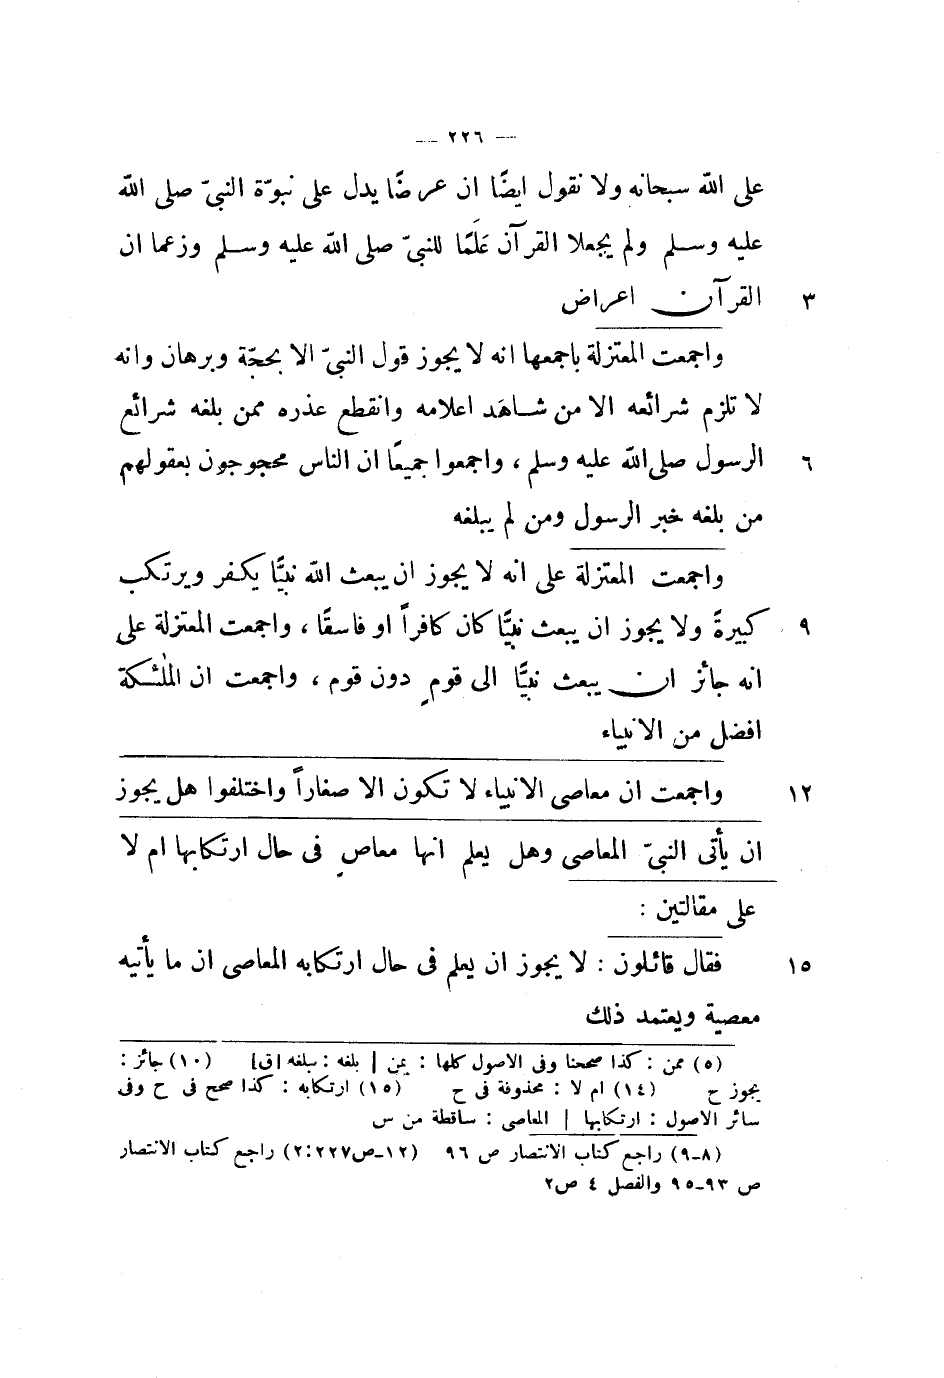 — ٢٢٦ —
على الله سبحانه ولا نقول ايضًا ان عرضًا يدل على نبوّة النبىّ صلى الله
عليه وسلم ولم يجعلا القرآن عَلَمًا للنبىّ صلى الله عليه وسلم وزعما ان
٣ القرآن اعراض
واجمعت المعتزلة باجمعها انه لا يجوز قول النبىّ الا بحجّة وبرهان وانه
لا تلزم شرائعه الا من شاهَد اعلامه وانقطع عذره ممن بلغه شرائع
٦ الرسول صلى الله عليه وسلم ، واجمعوا جميعًا ان الناس محجوجون بعقولهم
من بلغه خبر الرسول ومن لم يبلغه
واجمعت المعتزلة على انه لا يجوز ان يبعث الله نبيًّا يكفر ويرتكب
٩ كبيرةً ولا يجوز ان يبعث نبيًّا كان كافراً او فاسقًا ، واجمعت المعتزلة على
انه جائز ان يبعث نبيًّا الى قومٍ دون قوم ، واجمعت ان الملٰئكة
افضل من الانبياء
١٢ واجمعت ان معاصى الانبياء لا تكون الا صغاراً واختلفوا هل يجوز
ان يأتى النبىّ المعاصى وهل يعلم انها معاصٍ فى حال ارتكابها ام لا
على مقالتين :
١٥ فقال قائلون : لا يجوز ان يعلم فى حال ارتكابه المعاصى ان ما يأتيه
معصية ويعتمد ذلك
(٥) ممن : كذا صححنا وفى الاصول كلها : يمن | بلغه : ببلغه [ق] (١٠) جائز :
يجوز ح (١٤) ام لا : محذوفة فى ح (١٥) ارتكابه : كذا صحح فى ح وفى
سائر الاصول : ارتكابها | المعاصى : ساقطة من س
(٨-٩) راجع كتاب الانتصار ص ٩٦ (١٢-ص٢٢٧:٢) راجع كتاب الانتصار
ص ٩٣-٩٥ والفصل ٤ ص٢